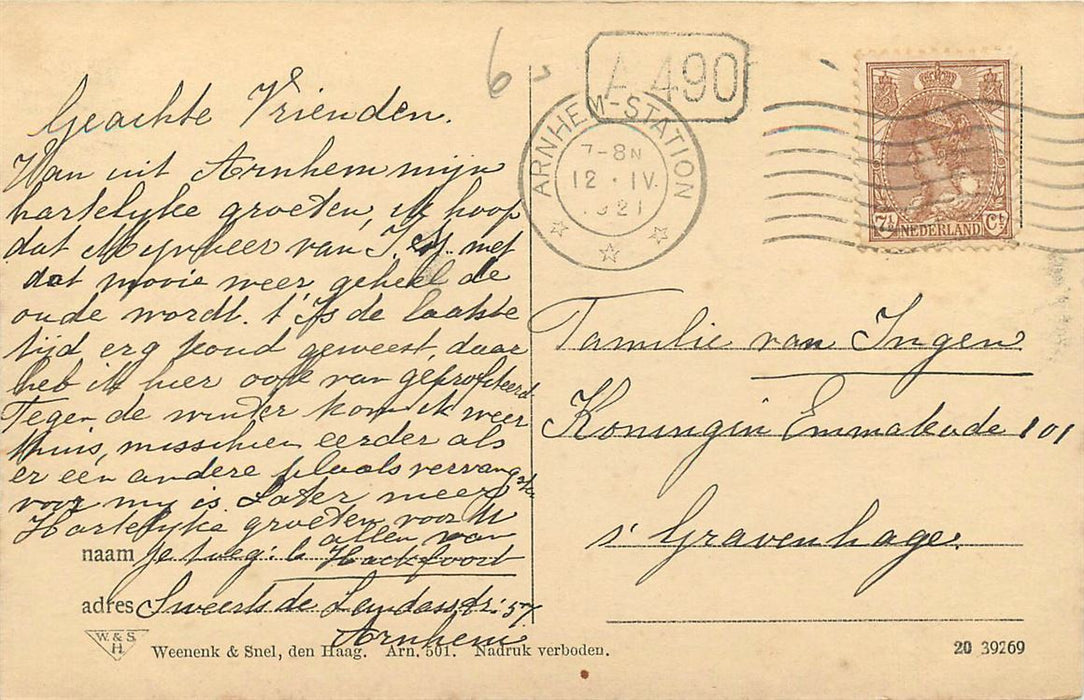 6
A 490
ARNHEM-STATION
7-8N
12 · IV.
1921
7½ Ct
NEDERLAND
Geachte Vrienden.
Van uit Arnhem mijn
hartelyke groeten, ik hoop
dat Mynheer van I. met
dat mooie weer geheel de
oude wordt. t'Is de laatste
tijd erg koud geweest, daar
heb ik hier ook van geprofiteerd
Tegen de winter kom ik weer
thuis, misschien eerder als
er een andere plaatsvervangster
voor my is. Later meer
Hartelyke groeten voor U
allen van
naam
Hackfoort
adres Sweerts de Landasstr: 57
Arnhem
Familie van Ingen
Koningin Emmakade 101
s' Gravenhage.
W. & S.
H.
Weenenk & Snel, den Haag. Arn. 501. Nadruk verboden.
20 39269